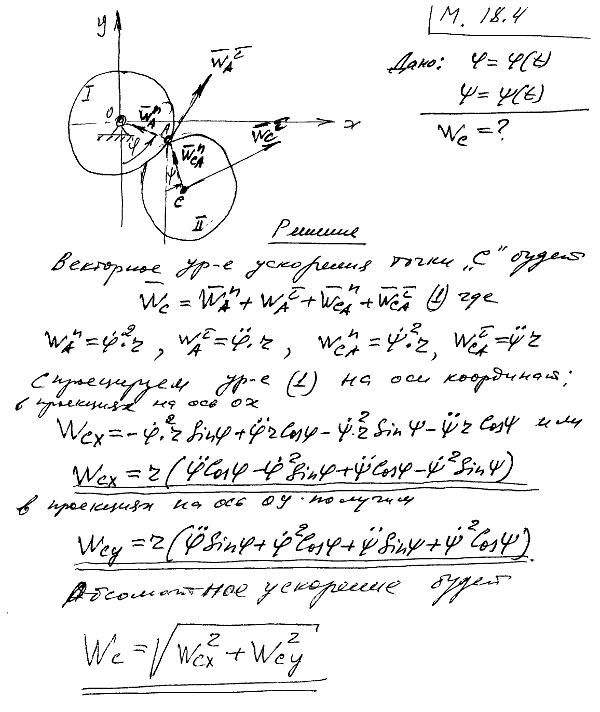 М. 18.4
Дано: φ = φ(t)
ψ = ψ(t)
Wc = ?
y
I
O
W̄Aⁿ
W̄A^τ
A
x
W̄c^τ
W̄CAⁿ
φ
ψ
C
II
Решение
Векторное ур-е ускорения точки „С" будет
W̄c = W̄Aⁿ + W̄A^τ + W̄CAⁿ + W̄CA^τ (1) где
WAⁿ = φ̇²·r , WA^τ = φ̈·r , WCAⁿ = ψ̇²·r, WCA^τ = ψ̈r
Спроецируем ур-е (1) на оси координат;
в проекциях на ось ох
Wcx = -φ̇²·r Sinφ + φ̈r Cosφ - ψ̇²·r Sinψ - ψ̈r Cosψ или
Wcx = r(φ̈Cosφ - φ̇²Sinφ + ψ̈Cosψ - ψ̇²Sinψ)
в проекциях на ось оу получим
Wcy = r(φ̈Sinφ + φ̇²Cosφ + ψ̈Sinψ + ψ̇²Cosψ).
Абсолютное ускорение будет
Wc = √(Wcx² + Wcy²)